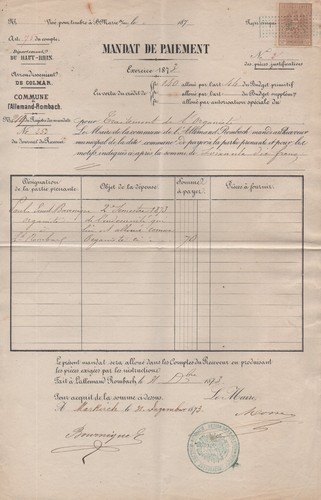 Nº. Visé pour timbre à Ste Marie
187
MANDAT DE PAIEMENT
Art. du compte.
Département
DU HAUT-RHIN.
Arrondissement
DE COLMAR.
COMMUNE
de
l'Allemand-Rombach.
Nº du Registre des mandats
Nº 453
du Journal du Receveur.
Exercice 1873
Nº
des pièces justificatives
En vertu du crédit de 140 alloué par l'art. 44 du Budget primitif
alloué par l'art. du Budget suppl.
alloué par autorisation spéciale du
pour Traitement de l'Organiste
Le Maire de la commune de l'Allemand Rombach mande au Receveur
municipal de la dite commune de payer à la partie prenante et pour les
motifs indiqués ci-après la somme de Soixante dix francs
Désignation de la partie prenante.
Objet de la dépense.
Somme à payer.
Pièces à fournir.
2e Semestre 1873
organiste de l'indemnité qui
à lui est allouée comme
l. Rombach Organiste 70
Le présent mandat sera alloué dans les Comptes du Receveur en produisant
les pièces exigées par les instructions.
Fait à l'allemand Rombach le 31 Xbre 1873
Pour acquit de la somme ci-dessus.
Le Maire,
A Markirch le 31 Dezember 1873.